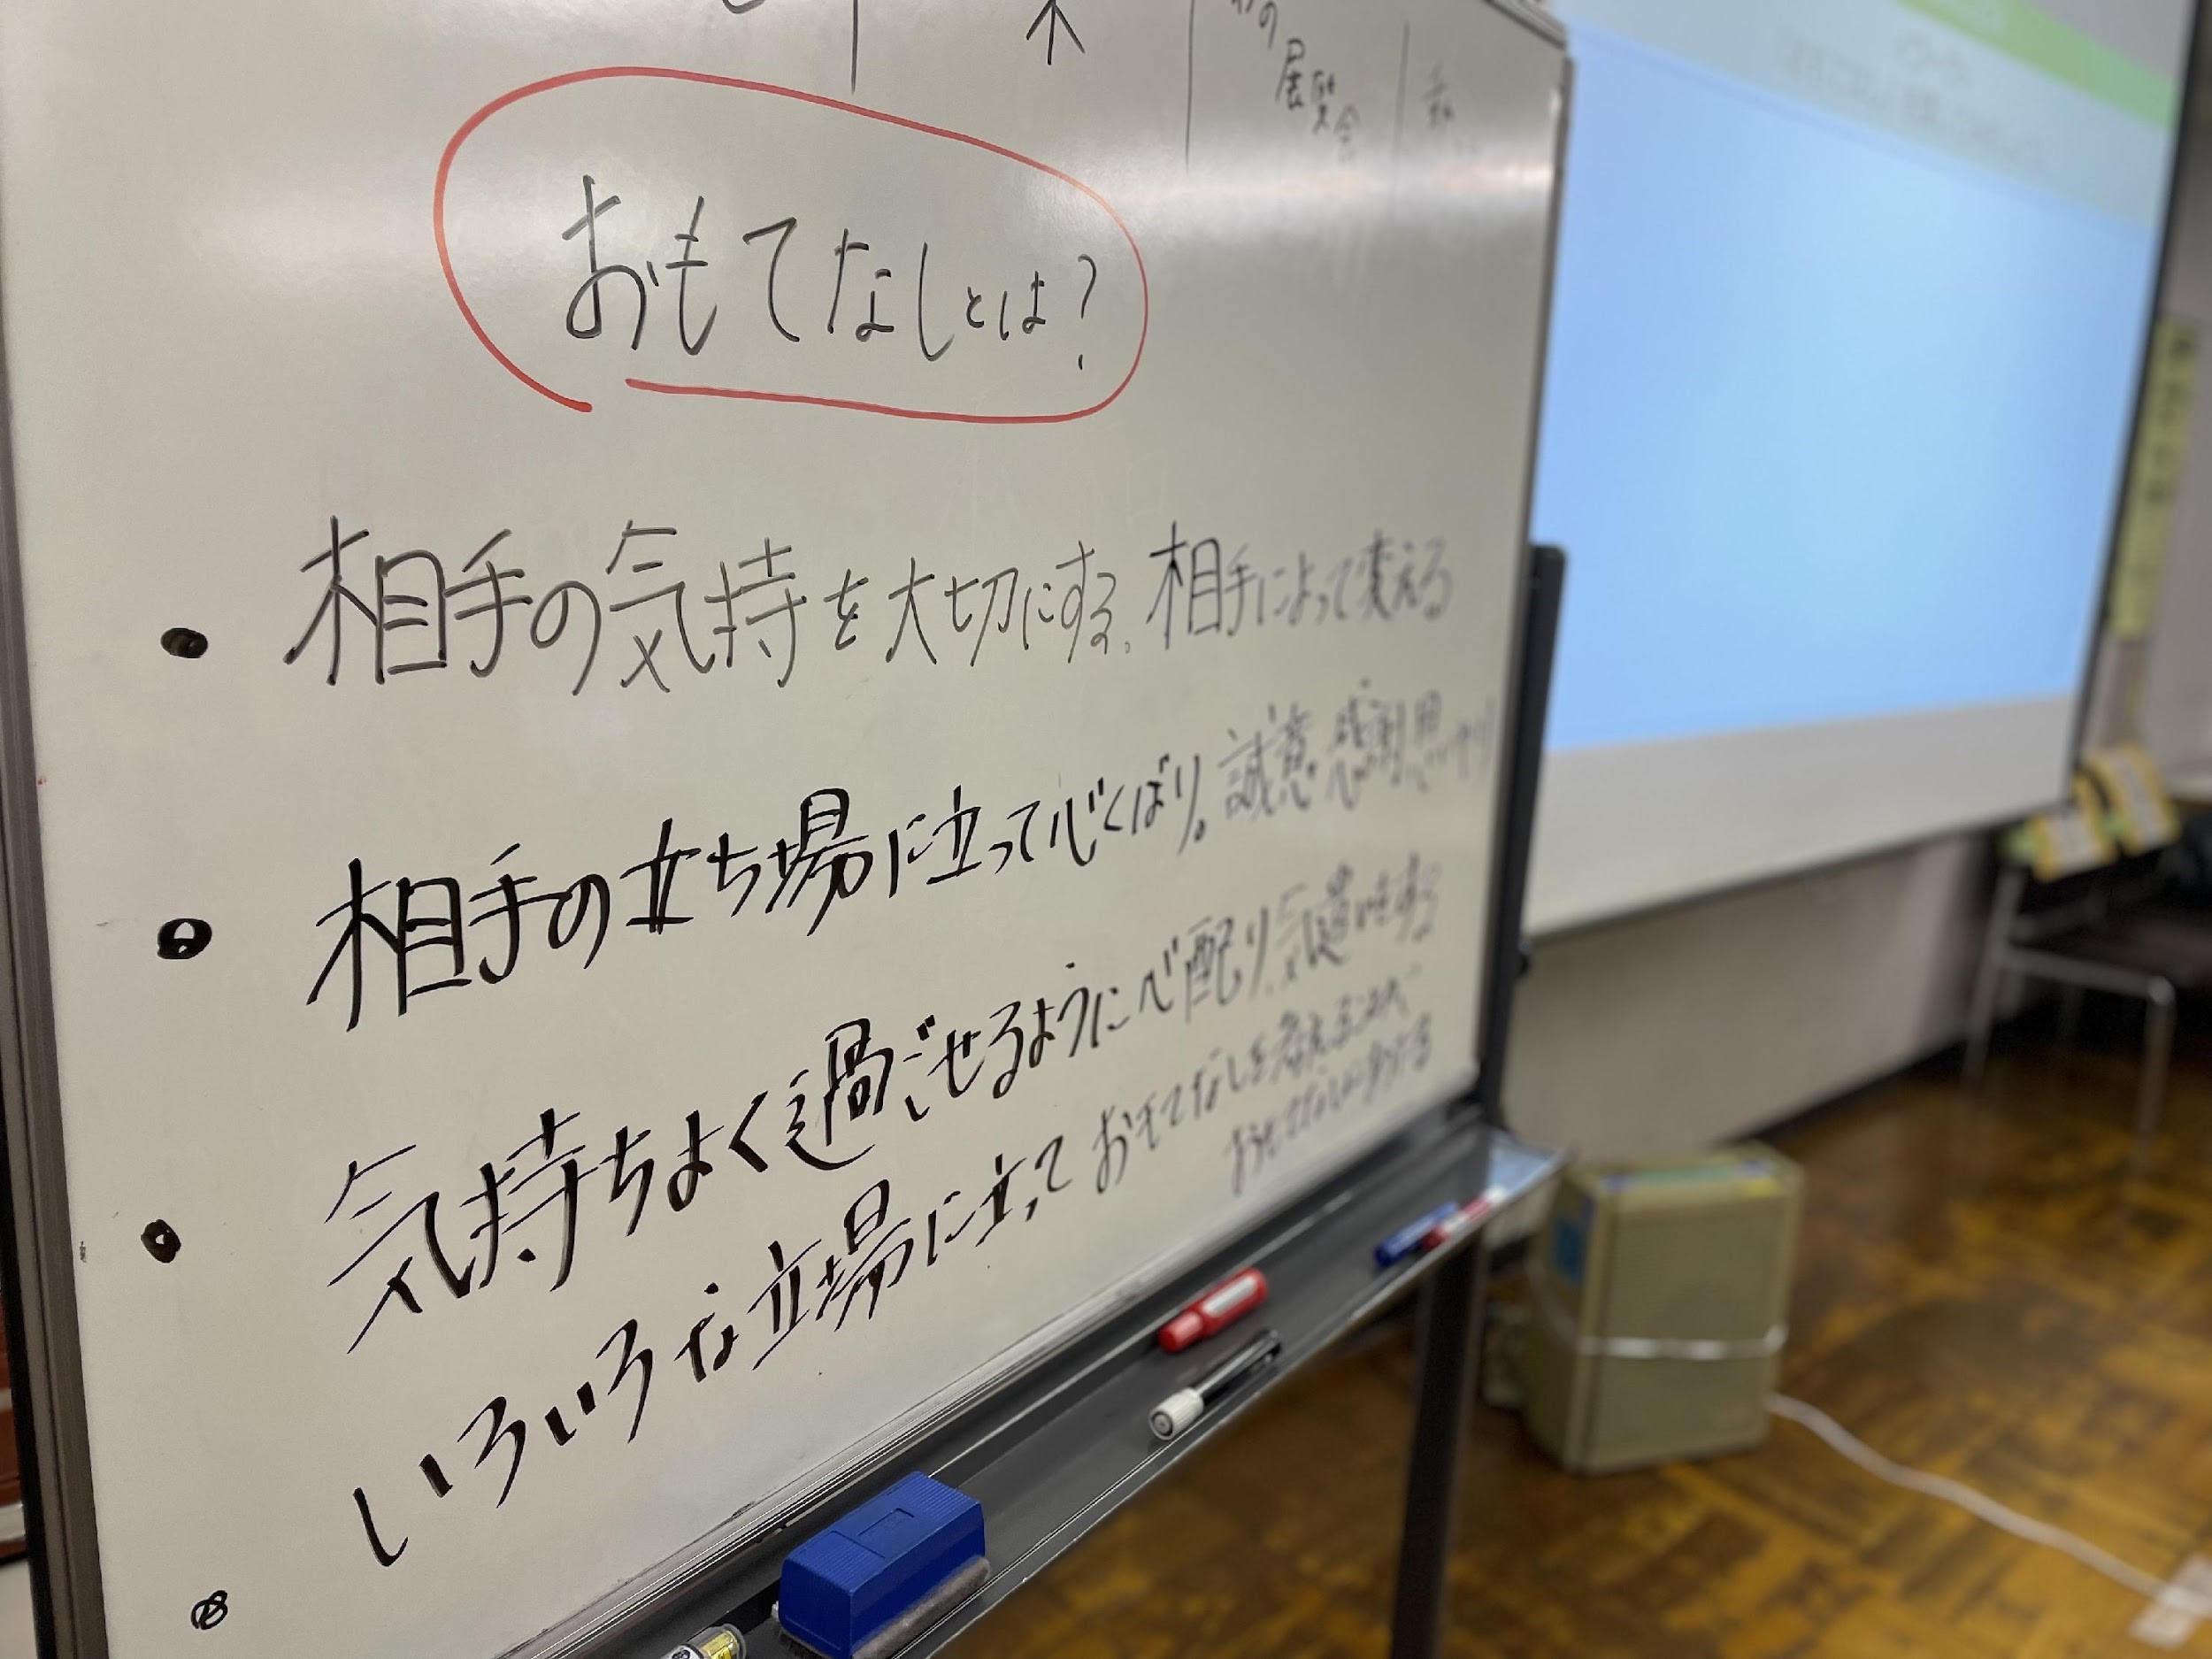 の
展覧会
おもてなしとは?
・相手の気持を大切にする、相手によって変える
・相手の立ち場に立って心くばり。誠意 感謝 思いやり
・気持ちよく過ごせるように心配り、気遣いをする
・いろいろな立場に立っておもてなしを考え
おもてなしに